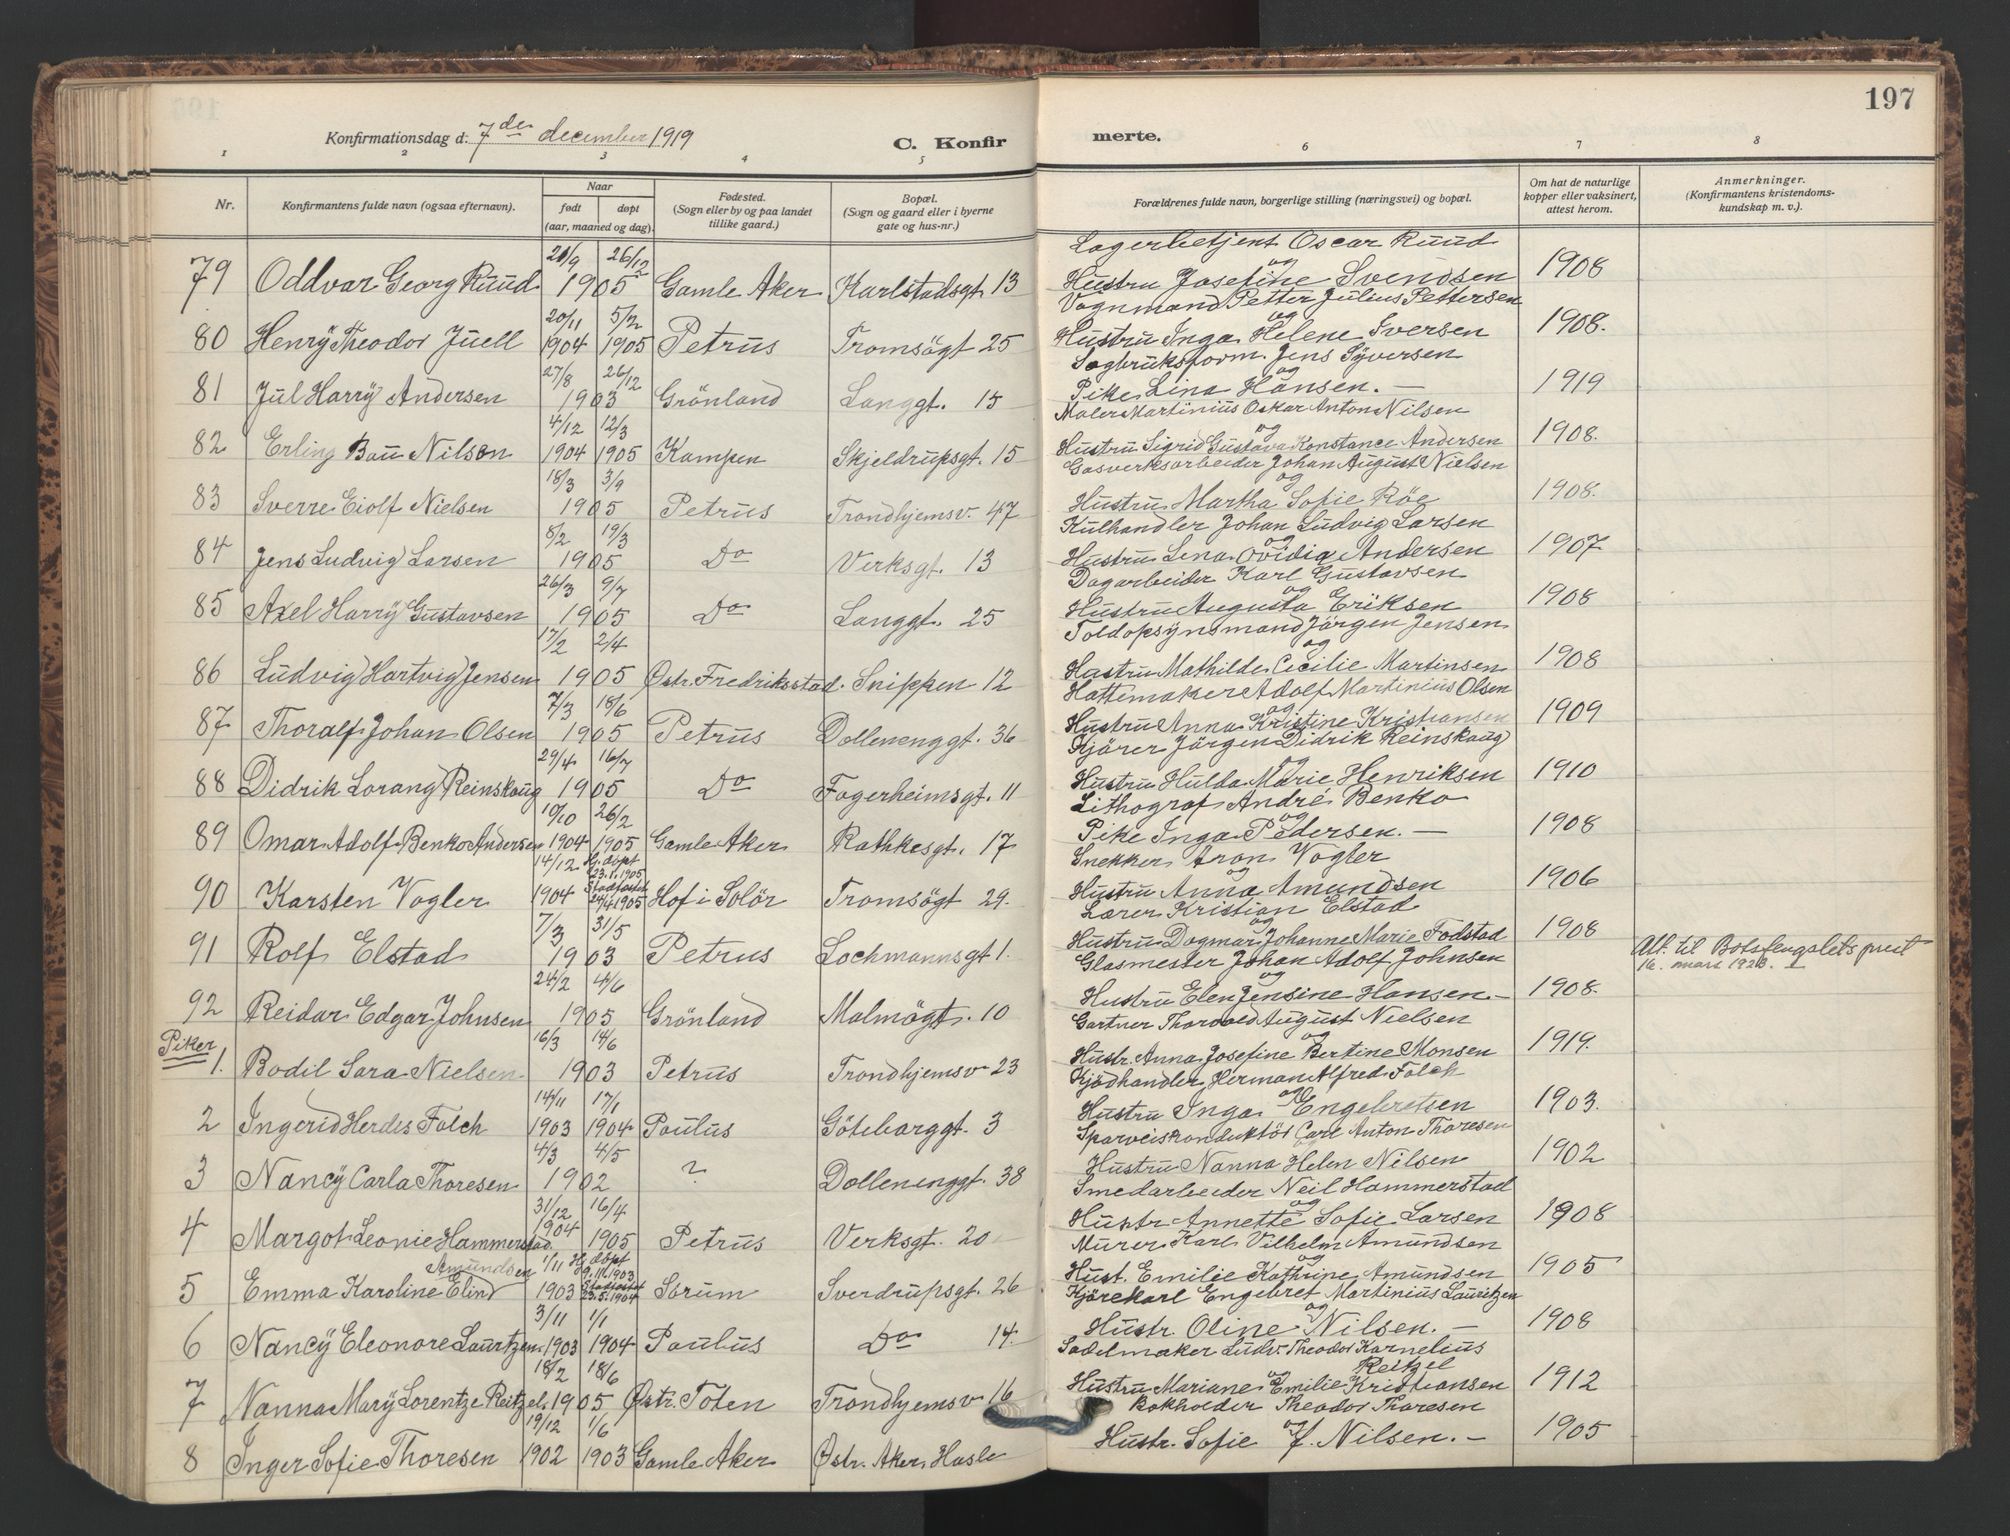 197
Konfirmationsdag d. 7de december 1919
C. Konfirmerte.
1 2 3 4 5 6 7 8
Nr. Konfirmantens fulde navn (ogsaa efternavn). Naar født døpt (aar, maaned og dag). Fødested. (Sogn eller by og paa landet tillike gaard.) Bopæl. (Sogn og gaard eller i byerne gate og hus-nr.) Forældrenes fulde navn, borgerlige stilling (næringsvei) og bopæl. Om hat de naturlige kopper eller vaksinert, attest herom. Anmerkninger. (Konfirmantens kristendoms-kundskap m. v.).
21/9 26/12 Lagerbetjent Oscar Ruud
og
79 Oddvar Georg Ruud 1905 Gamle Aker Karlstadsgt 13 Hustru Josefine Svendsen 1908
20/11 5/2 Vognmand Petter Julius Pettersen
og
80 Henrÿ Theodor Juell 1904 1905 Petrus Tromsögt 25 Hustru Inga Helene Iversen 1908.
27/8 26/12 Sagbruksform. Jens Sÿversen
og
81 Jul Harrÿ Andersen 1903 Grönland Langgt. 15 Pike Lina Hansen. — 1919
4/12 12/3 Maler Martinius Oskar Anton Nilsen
og
82 Erling Bau Nilsen 1904 1905 Kampen Skjeldrupsgt. 15 Hustru Sigrid Gustava Konstance Andersen 1908.
18/3 3/9 Gasverksarbeider Johan August Nielsen
og
83 Sverre Eiolf Nielsen 1905 Petrus Trondhjemsv. 47 Hustru Martha Sofie Röe 1908.
8/2 19/3 Kulhandler Johan Ludvig Larsen
og
84 Jens Ludvig Larsen 1905 Do Verksgt. 13 Hustru Lena Ovidia Andersen 1907
26/3 9/7 Dagarbeider Karl Gustavsen
og
85 Axel Harrÿ Gustavsen 1905 Do Langgt. 25 Hustru Augusta Eriksen 1908
17/2 2/4 Toldopsÿnsmand Jörgen Jensen
og
86 Ludvig Hartvig Jensen 1905 Østr. Fredriksstad. Snippen 12 Hustru Mathilde Cecilie Martinsen 1908
7/3 18/6 Hattemaker Adolf Martinius Olsen
og
87 Thoralf Johan Olsen 1905 Petrus Dollenenggt. 36 Hustru Anna Kristine Kristiansen 1909
29/4 16/7 Kjörer Jörgen Didrik Reinskaug
og
88 Didrik Lorang Reinskaug 1905 Do Fagerheimsgt. 11 Hustru Hulda Marie Henriksen 1910
10/10 26/2 Lithograf André Benko
og
89 Omar Adolf Benko Andersen 1904 1905 Gamle Aker Rathkesgt. 17 Pike Inga Pedersen. — 1908
14/12 Hj. döpt 23.1.1905 Snekker Aron Vogler
og
90 Karsten Vogler 1904 Stadfæstet 24/4 1905 Hof i Solör Tromsögt 29. Hustru Anna Amundsen 1906
7/3 31/5 Lærer Kristian Elstad
og
91 Rolf Elstad 1903 Petrus Lochmannsgt 1. Hustru Dagmar Johanne Marie Fodstad 1908 Att. til Botsfengslets prest
16. mars 1923.
24/2 4/6 Glasmester Johan Adolf Johnsen
og
92 Reidar Edgar Johnsen 1905 Grönland Malmögt. 10 Hustru Elen Jensine Hansen. — 1908.
Piker
16/3 14/6 Gartner Thorvald August Nielsen
og
1. Bodil Sara Nielsen 1903 Petrus Trondhjemsv 23 Hustr. Anna Josefine Bertine Monsen 1919.
14/11 17/1 Kjödhandler Herman Alfred Falch
og
2 Ingerid Herdis Falch 1903 1904 Paulus Göteborggt. 3 Hustru Inga Engebretsen 1903.
4/3 4/5 Sparveiskonduktör Carl Anton Thoresen
3 Nancÿ Carla Thoresen 1902 ? Dollenenggt. 38 Hustru Nanna Helen Nilsen 1902
31/12 16/4 Smedarbeider Neil Hammerstad
og
4 Margot Leonie Hammerstad. 1904 1905 Petrus Verksgt. 20 Hustr Annette Sofie Larsen 1908
Amundsen 1/11 Hj. döpt 9.11.1903 Murer Karl Vilhelm Amundsen
og
5 Emma Karoline Elind 1903 Stadfæstet 23.5.1904 Sörum Sverdrupsgt. 26 Hust. Emilie Kathrine Amundsen 1905
3/11 1/1 Kjörekarl Engebret Martinius Lauritzen
og
6 Nancÿ Eleonore Lauritzen 1903 1904 Paulus Do 14. Hustr. Oline Nilsen. — 1908
18/2 18/6 Sadelmaker Ludv. Theodor Kornelius Reitzel
og
7 Nanna Marÿ Lorentze Reitzel 1905 Østr. Toten Trondhjemsv 16 Hustru Mariane Emilie Kristiansen 1912
19/12 1/6 Bokholder Theodor Thoresen
og
8 Inger Sofie Thoresen 1902 1903 Gamle Aker Østr. Aker, Hasle Hustr. Sofie f. Nilsen. — 1905